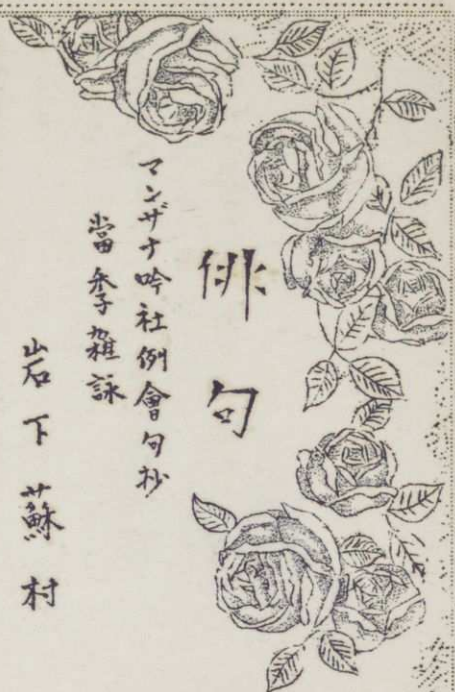 俳句
マンザナ吟社例會句抄
當季雜詠
岩下蘇村